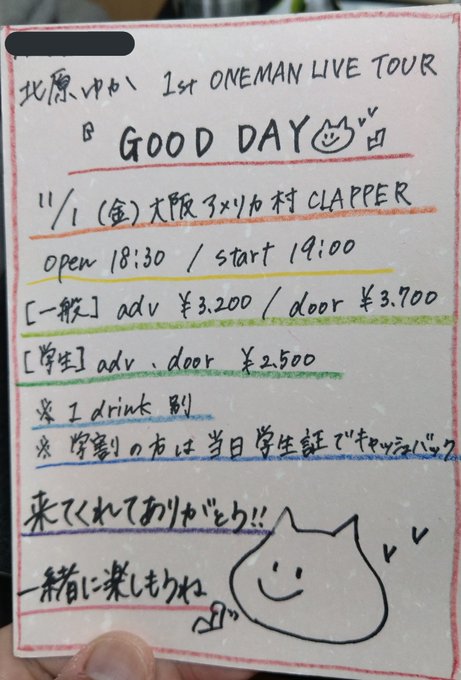 北原ゆか 1st ONEMAN LIVE TOUR
『GOOD DAY』
11/1 (金) 大阪アメリカ村 CLAPPER
open 18:30 / start 19:00
[一般] adv ¥3.200 / door ¥3.700
[学生] adv、door ¥2.500
※ 1 drink 別
※ 学割の方は当日学生証でキャッシュバック
来てくれてありがとう!!
一緒に楽しもうね